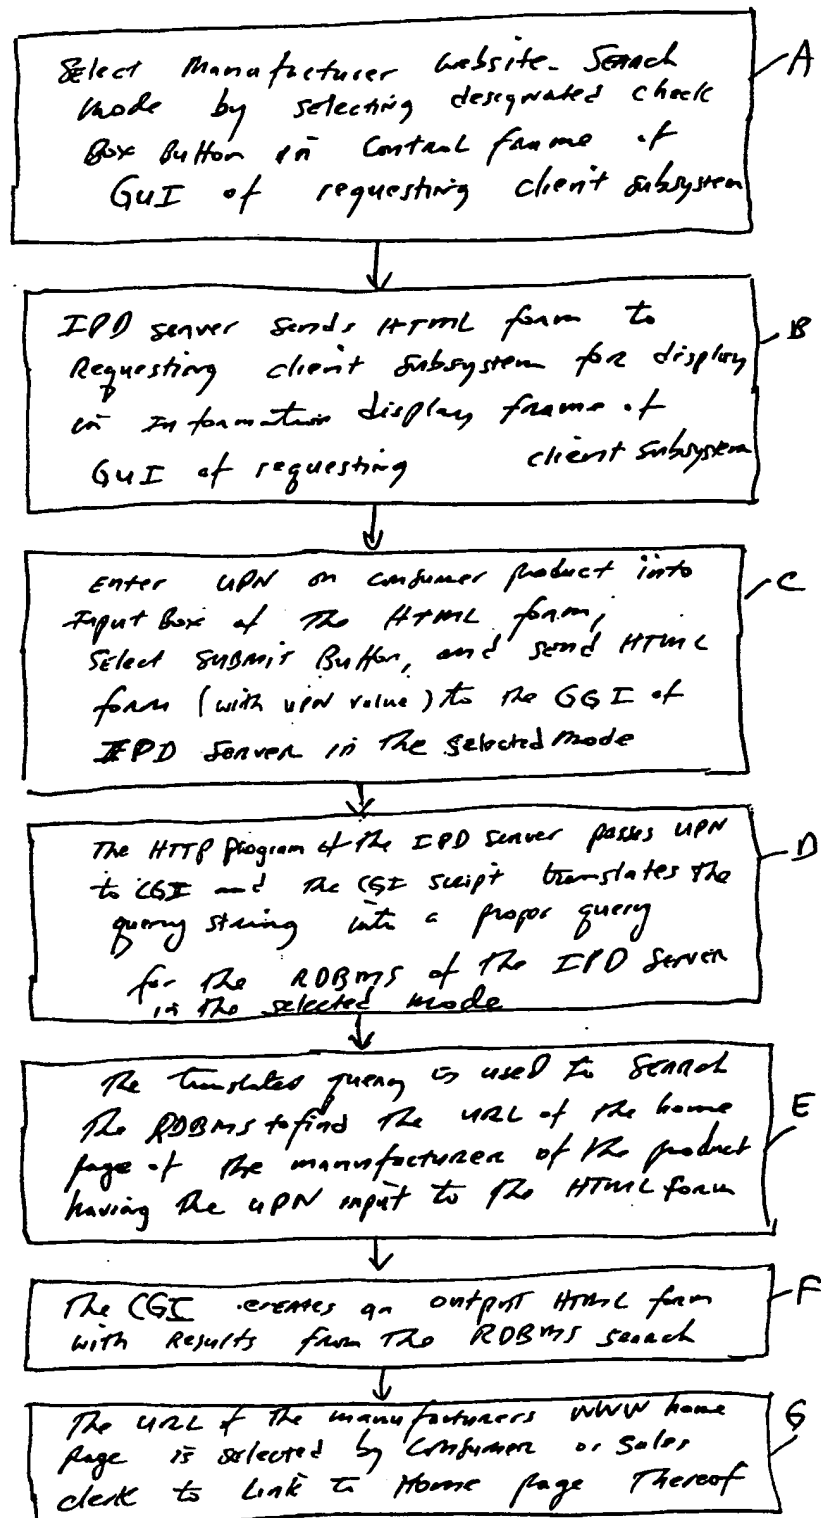 Select Manufacturer Website-Search
Mode by selecting designated check
Box Button in Control frame of
GUI of requesting client subsystem
A
IPD server sends HTML form to
Requesting client subsystem for display
in Information display frame of
GUI of requesting client subsystem
B
Enter UPN on consumer product into
Input Box of The HTML form,
Select SUBMIT Button, and send HTML
form (with UPN value) to the GGI of
IPD Server in the selected mode
C
The HTTP program of the IPD Server passes UPN
to CGI and the CGI script translates the
query string into a propor query
for the RDBMS of the IPD Server
in the selected mode
D
The translated query is used to Search
The RDBMS to find the URL of the home
page of the manufacturer of the product
having the UPN input to the HTML form
E
The CGI creates an output HTML form
with Results from The RDBMS search
F
The URL of the manufacturers WWW home
Page is selected by Consumer or Sales
clerk to Link to Home page Thereof
G